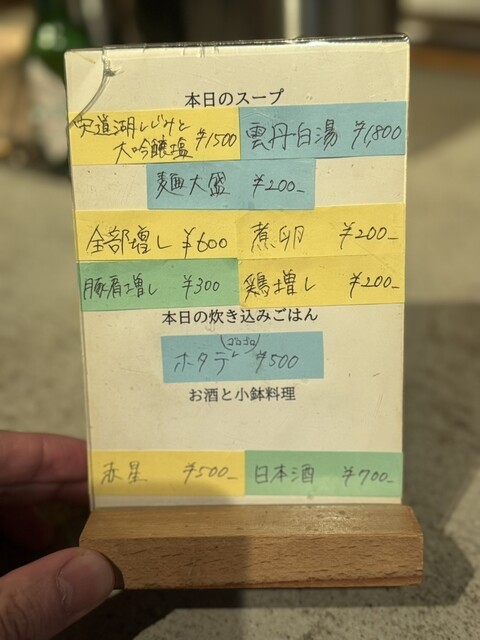 本日のスープ
宍道湖しじみと
大吟醸塩 ¥1500
雲丹白湯 ¥1,800
麺大盛 ¥200-
全部増し ¥600
煮卵 ¥200-
豚肩増し ¥300
鶏増し ¥200-
本日の炊き込みごはん
ホタテ ¥500
お酒と小鉢料理
赤星 ¥500-
日本酒 ¥700-